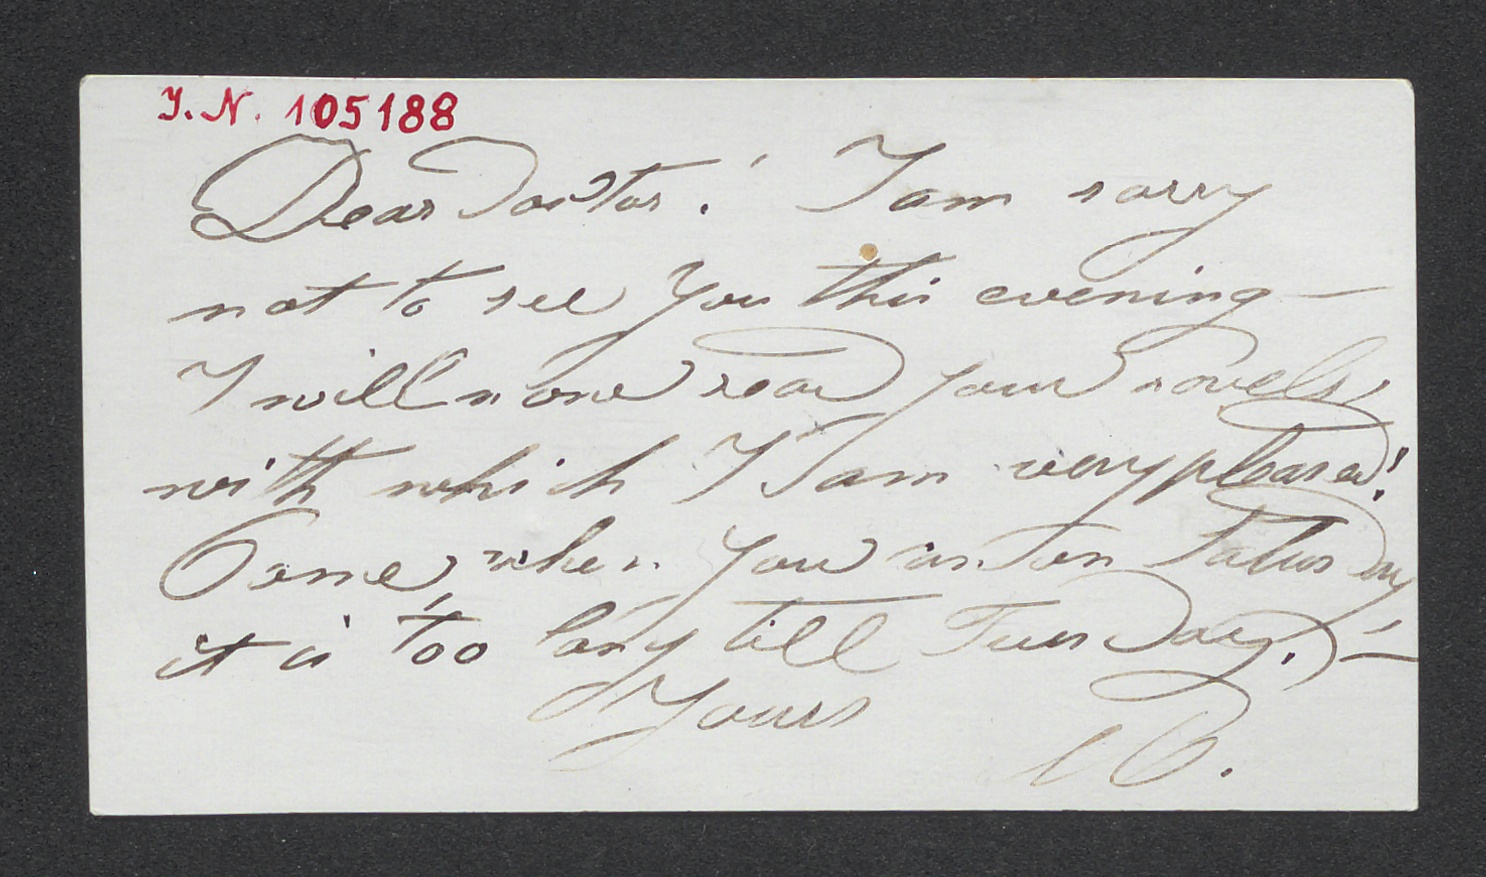 J.N. 105188
Dear Doctor! I am sorry
not to see you this evening —
I will read your novels,
with which I am very pleased!
Come, when you on Saturday
it is too long till Tuesday! —
Yours